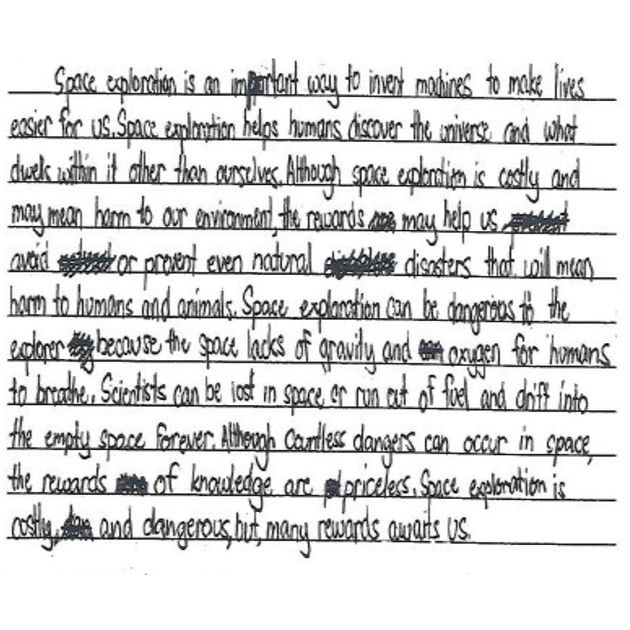 Space exploration is an important way to invent machines to make lives
easier for us. Space exploration helps humans discover the universe and what
dwells within it other than ourselves. Although space exploration is costly and
may mean harm to our environment, the rewards may help us
avoid or prevent even natural disasters that will mean
harm to humans and animals. Space exploration can be dangerous to the
explorer because the space lacks of gravity and oxygen for humans
to breathe. Scientists can be lost in space or run out of fuel and drift into
the empty space forever. Although Countless dangers can occur in space,
the rewards of knowledge are priceless. Space exploration is
costly, and dangerous, but, many rewards awaits us.